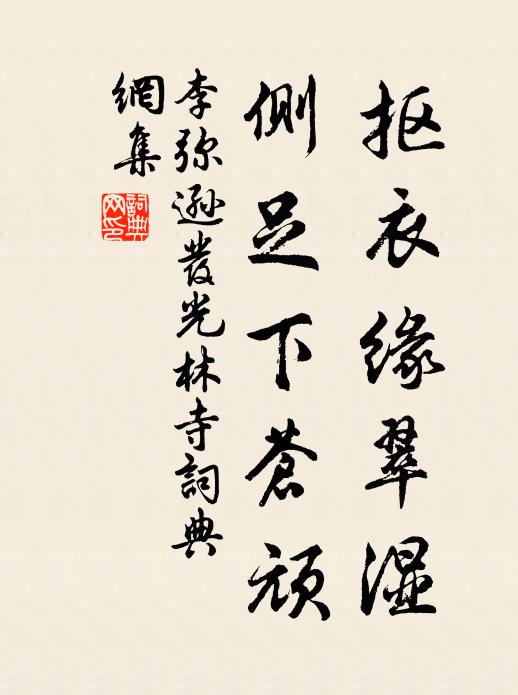 抠衣缘翠湿
侧足下苍顽
李弥逊发光林寺詞典
網集
詞典
网印